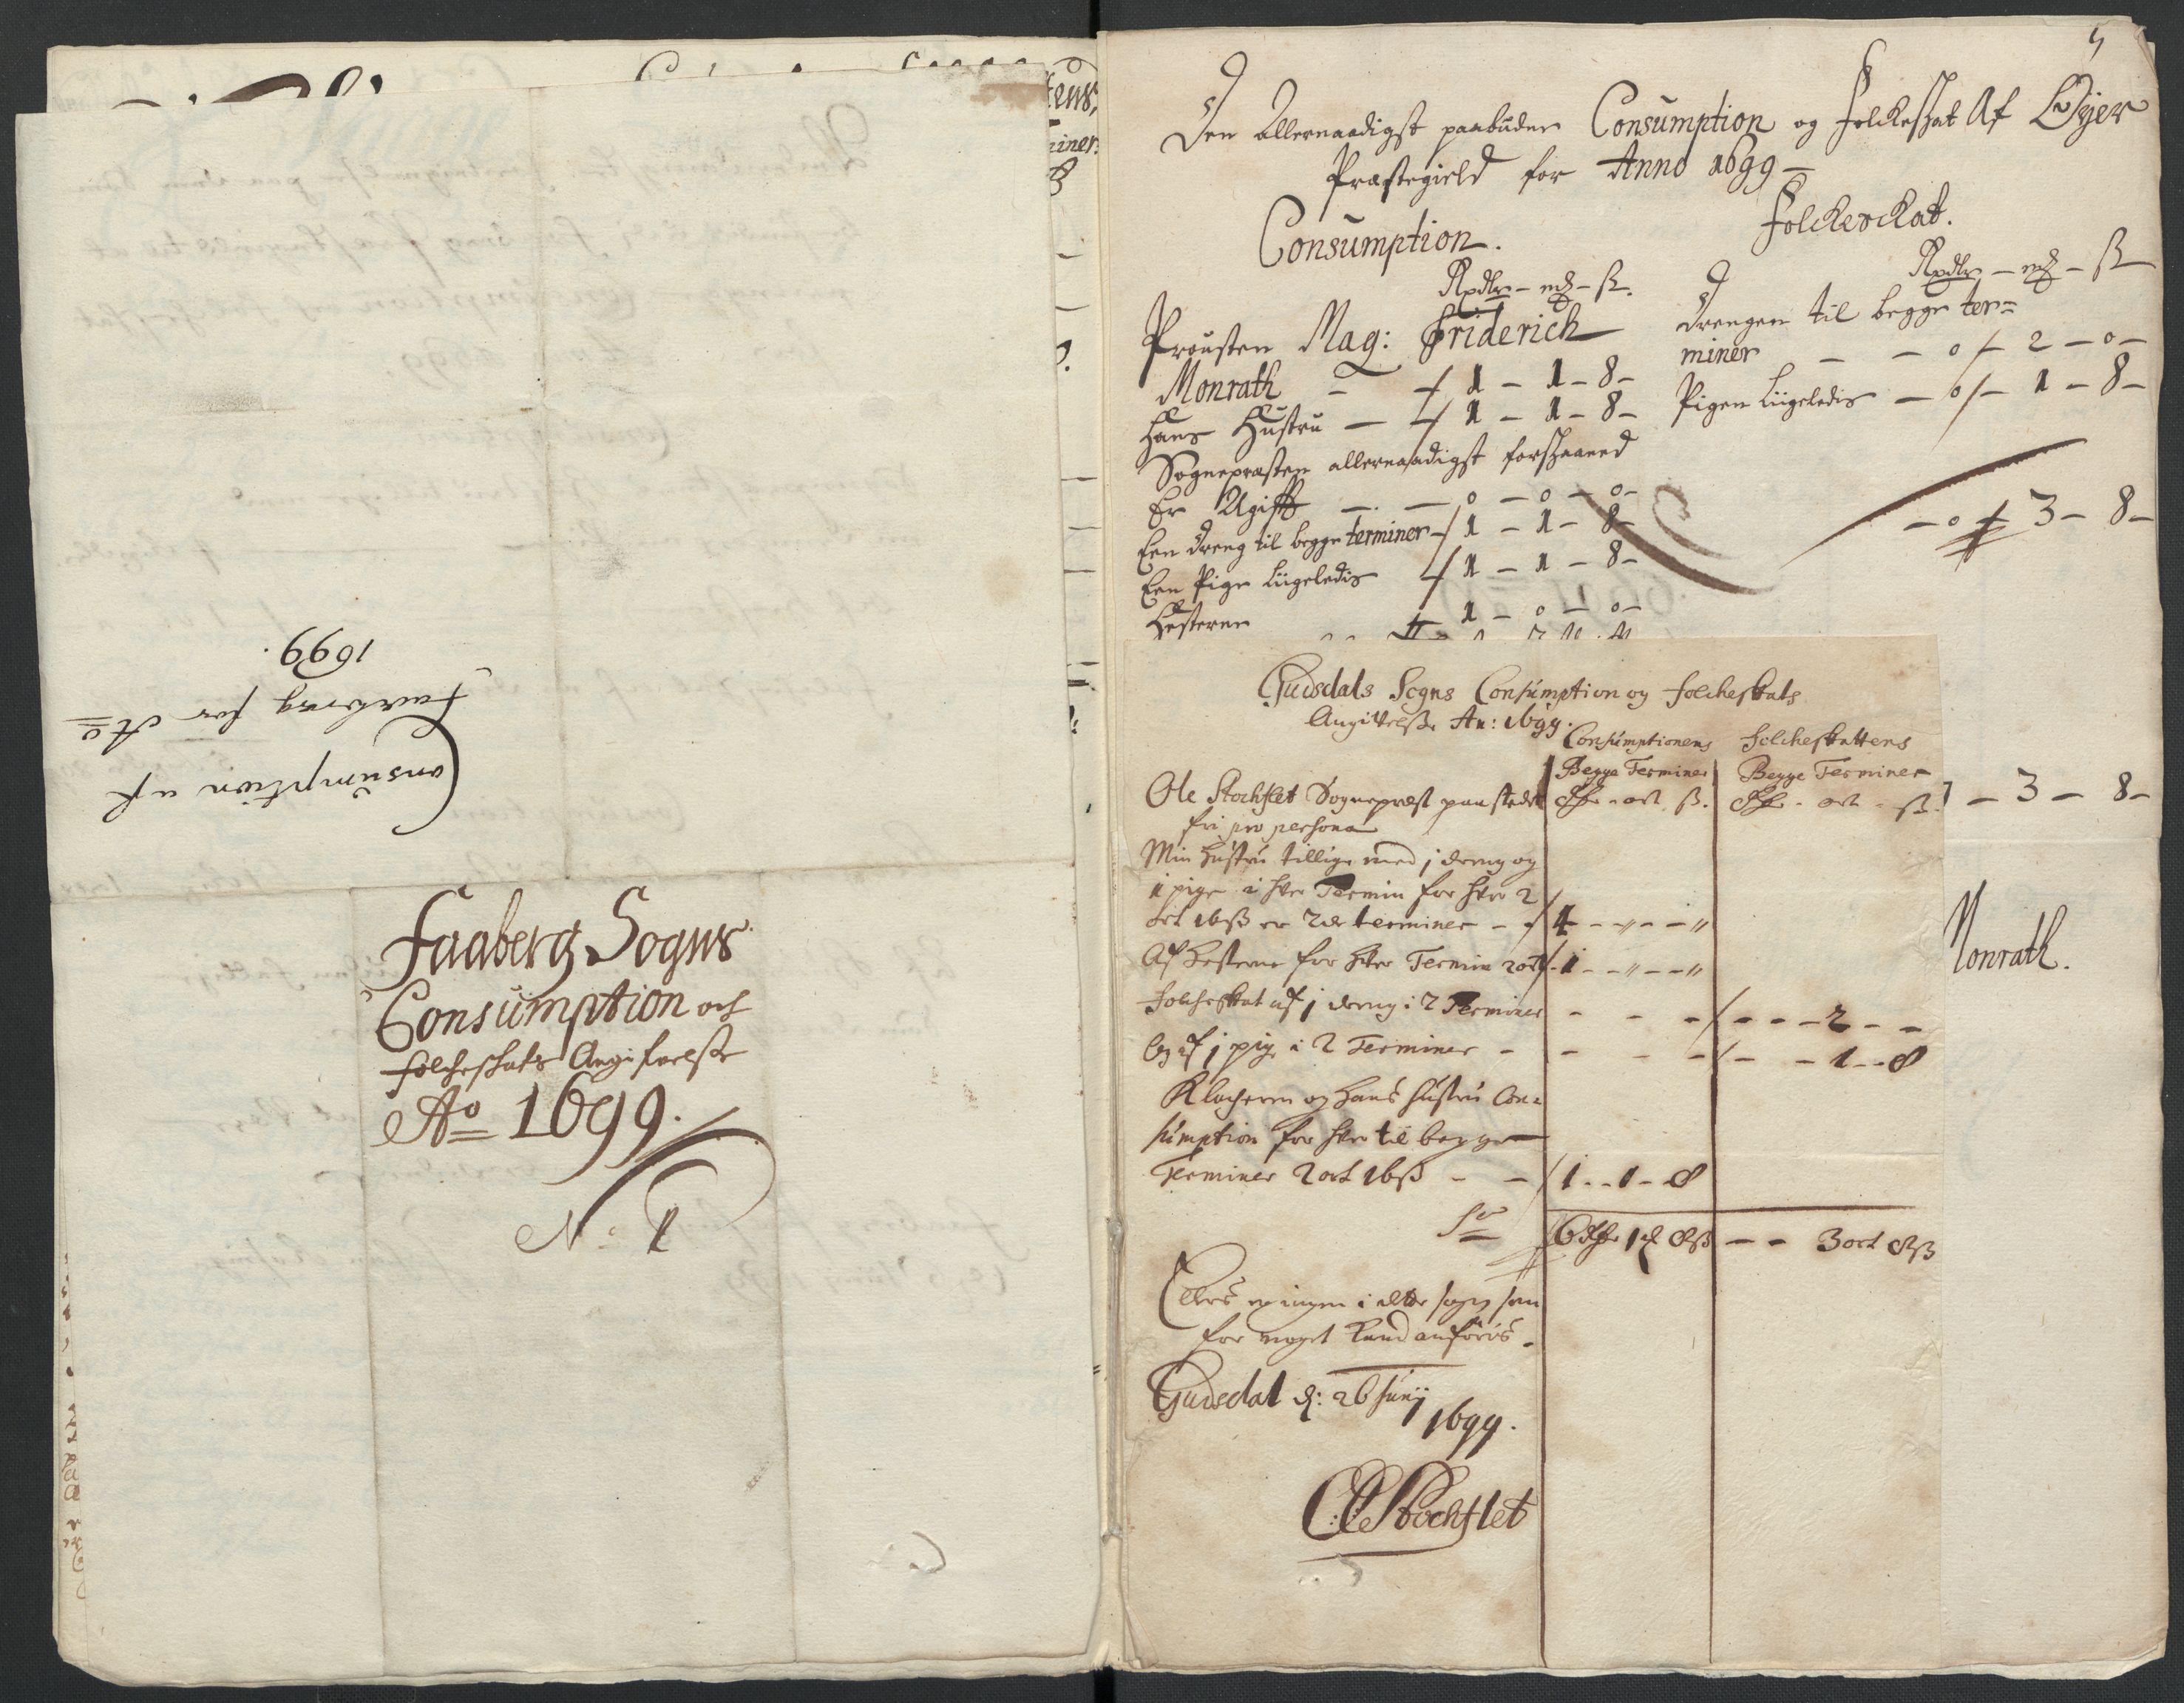 Consumption af
Faaberg for Ao
1699.
Faaberg Sogns
Consumption och
folcheskats Angifvelsse
Ao 1699.
N: 1
5
Den allernaadigst paabudne Consumption og Folckeskat Af Øyer
Præstegield for Anno 1699
Consumption.
Rxdlr - mg - ß.
Prousten Mag: Friderich
Monrath - - 1 - 1 - 8 -
Hans Hustru - 1 - 1 - 8 -
Sognepræsten allernaadigst forskaaned
for Agift - - 0 - 0 - 0 -
Een dreng til begge terminer - 1 - 1 - 8 -
Een Pige liigeledis 1 - 1 - 8 -
Hesterne 1 - 0 - 0 -
Folckeskat.
Rxdlr - mg - ß
drengen til begge ter=
miner - - 0 - 2 - 0 -
Pigen liigeledis - 0 - 1 - 8 -
- 0 - 3 - 8 -
- 3 - 8 -
Monrath.
Gudsdals Sogns Consumption og folcheskats
Angivelsse An: 1699.
Consumptionens folcheskattens
Begge Terminer Begge Terminer
Ole Stochflet Sognepræst paa stedet Rdr - ort ß. Rdr - ort - ß.
fri pro persona
Min hustru tillige med j dreng og
1 pige i hver Termin for hver 2
ort 16ß er 2de terminer - - 4 - - " - - "
Af hesterne for hver Termin 2 ort - 1 - - " - - "
folcheskat af j dreng i 2 Terminer - - - - - - 2 - -
Og af j pige i 2 Terminer - - - - - - 1 - - 8
Klocheren og hans hustru Con=
sumption for hver til begge
Terminer 2 ort 16ß - - 1 - - 1 - 8
Sa 6 Rdr 1 ort 8ß - - 3 ort 8ß
Ellers er ingen i dette sogn som
for noget kand anføris.
Gudsdal d: 26 Junij
1699.
Ole Stochflet